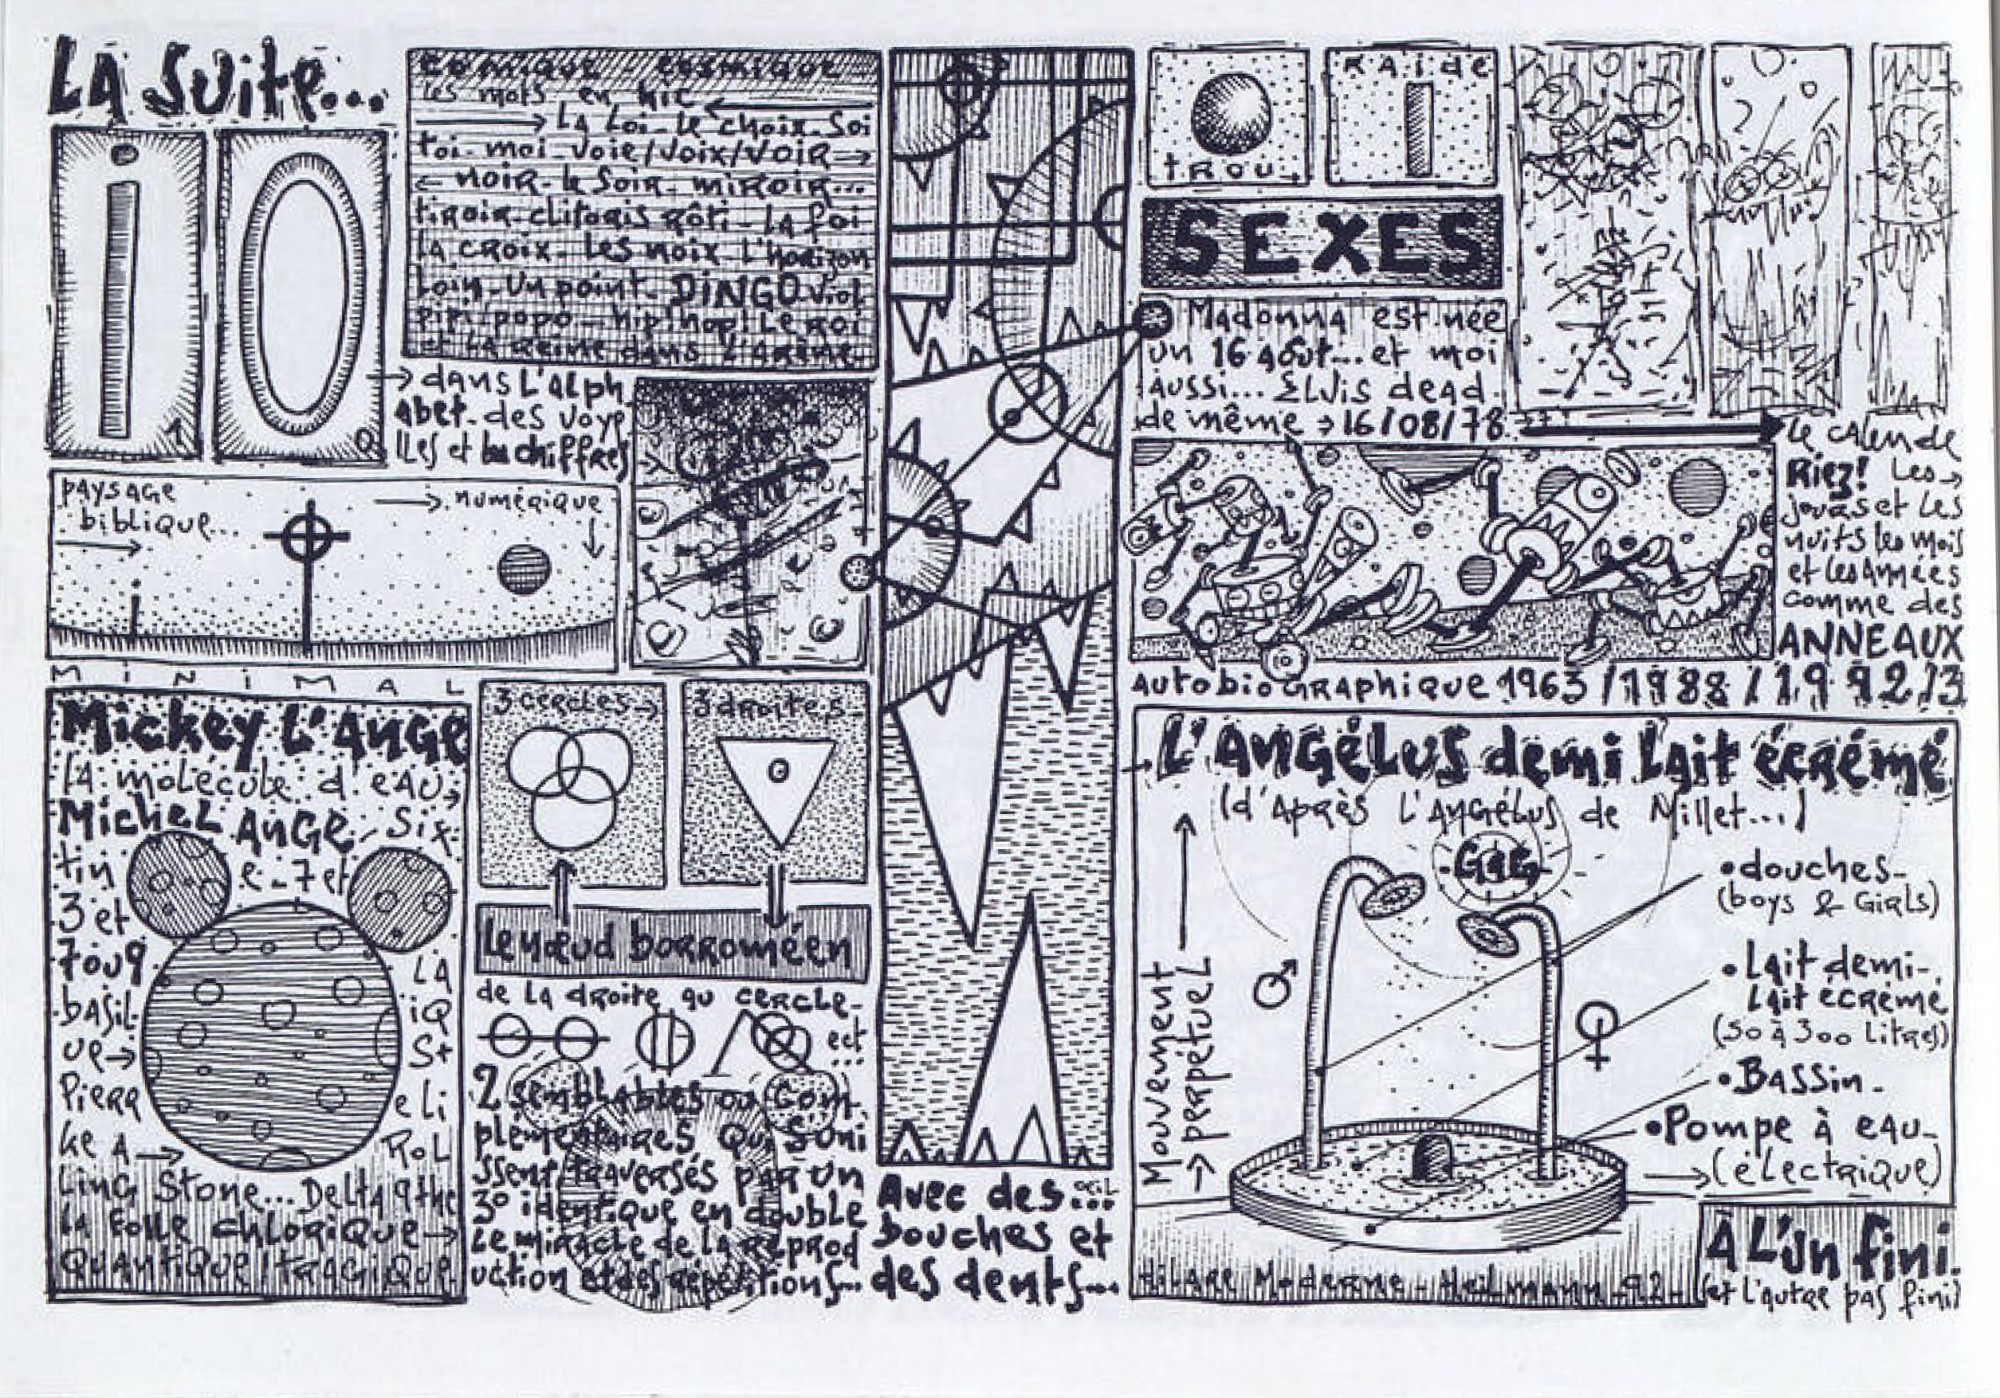 LA SUITE...
i
1
O
0
COMIQUE - COSMIQUE
les mots en hic
LA Loi - Le choix - Soi
toi - moi - Voie/Voix/VOIR
NOIR - le Soir - MIROIR...
tiroir clitoris Rôti - LA foi
LA CROIX - Les NOIX L'horizon
Loin - un point - DINGO viol
pipi popo - hip! hop! Le ROI
et LA Reine dans L'Arène
→ dans L'Alph
Abet - des voye
lles et chiffres
PAYSAGE
biblique...
numérique
MINIMAL
Mickey L'ANGE
LA molécule d'eau
Michel ANGE - Six
tin e - 7 et
3 et
7 ou 9
basil
ue →
Pierr
ke A →
LA
iQ
St
e Li
ROL
Ling Stone... Delta
LA folle chlorique →
Quantique/tragique
3 cercles →
3 droites
Le nœud borroméen
de LA droite au cercle -
ect
...
2 semblables ou com
plémentaires qui s'uni
ssent/traversés par un
3° identique en double
Le miracle de la Reprod
uction et des répétitions...
Avec des...
bouches et
des dents...
trou
RAide
SEXES
Madonna est née
un 16 Août... et moi
Aussi... Elvis dead
de même → 16/08/78
Le calende
Riez! Les →
jours et les
nuits les mois
et les Années
comme des
ANNEAUX
Autobiographique 1963/1988/1992/3
L'Angélus demi lait écrémé
(d'Après L'Angélus de Millet...)
GAG
Mouvement
→ perpétuel
♂
♀
• douches -
(boys & Girls)
• Lait demi -
Lait écrémé
(50 à 300 Litres)
• Bassin -
• Pompe à eau -
→ (électrique)
Hilare Moderne - Heilmann - 92 -
À L'un fini.
(et l'autre pas fini)